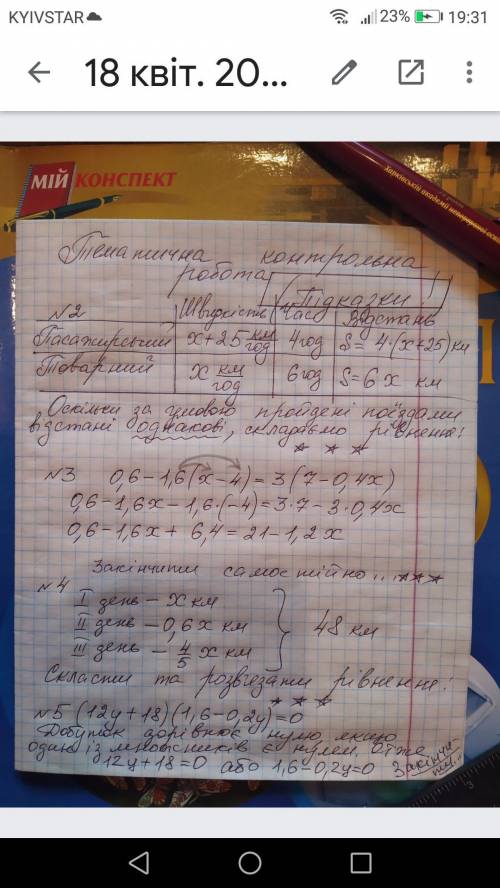 KYIVSTAR 23% 19:31
18 квіт. 20...
МІЙ КОНСПЕКТ
Тематична контрольна
робота
Підказки!
№2 Швидкість Час Відстань
Пасажирський x+25 км/год 4 год S = 4·(x+25) км
Товарний x км/год 6 год S=6x км
Оскільки за умовою пройдені поїздами
відстані однакові, складаємо рівняння!
№3 0,6-1,6(x-4)=3(7-0,4x)
0,6-1,6x-1,6·(-4)=3·7-3·0,4x
0,6-1,6x+6,4=21-1,2x
Закінчити самостійно...
№4
I день - x км
II день - 0,6x км
III день - 4/5 x км
48 км
Скласти та розв'язати рівняння!
№5 (12y+18)(1,6-0,2y)=0
Добуток дорівнює нулю, якщо
один із множників є нулем. Отже
12y+18=0 або 1,6-0,2y=0 Закінчити...